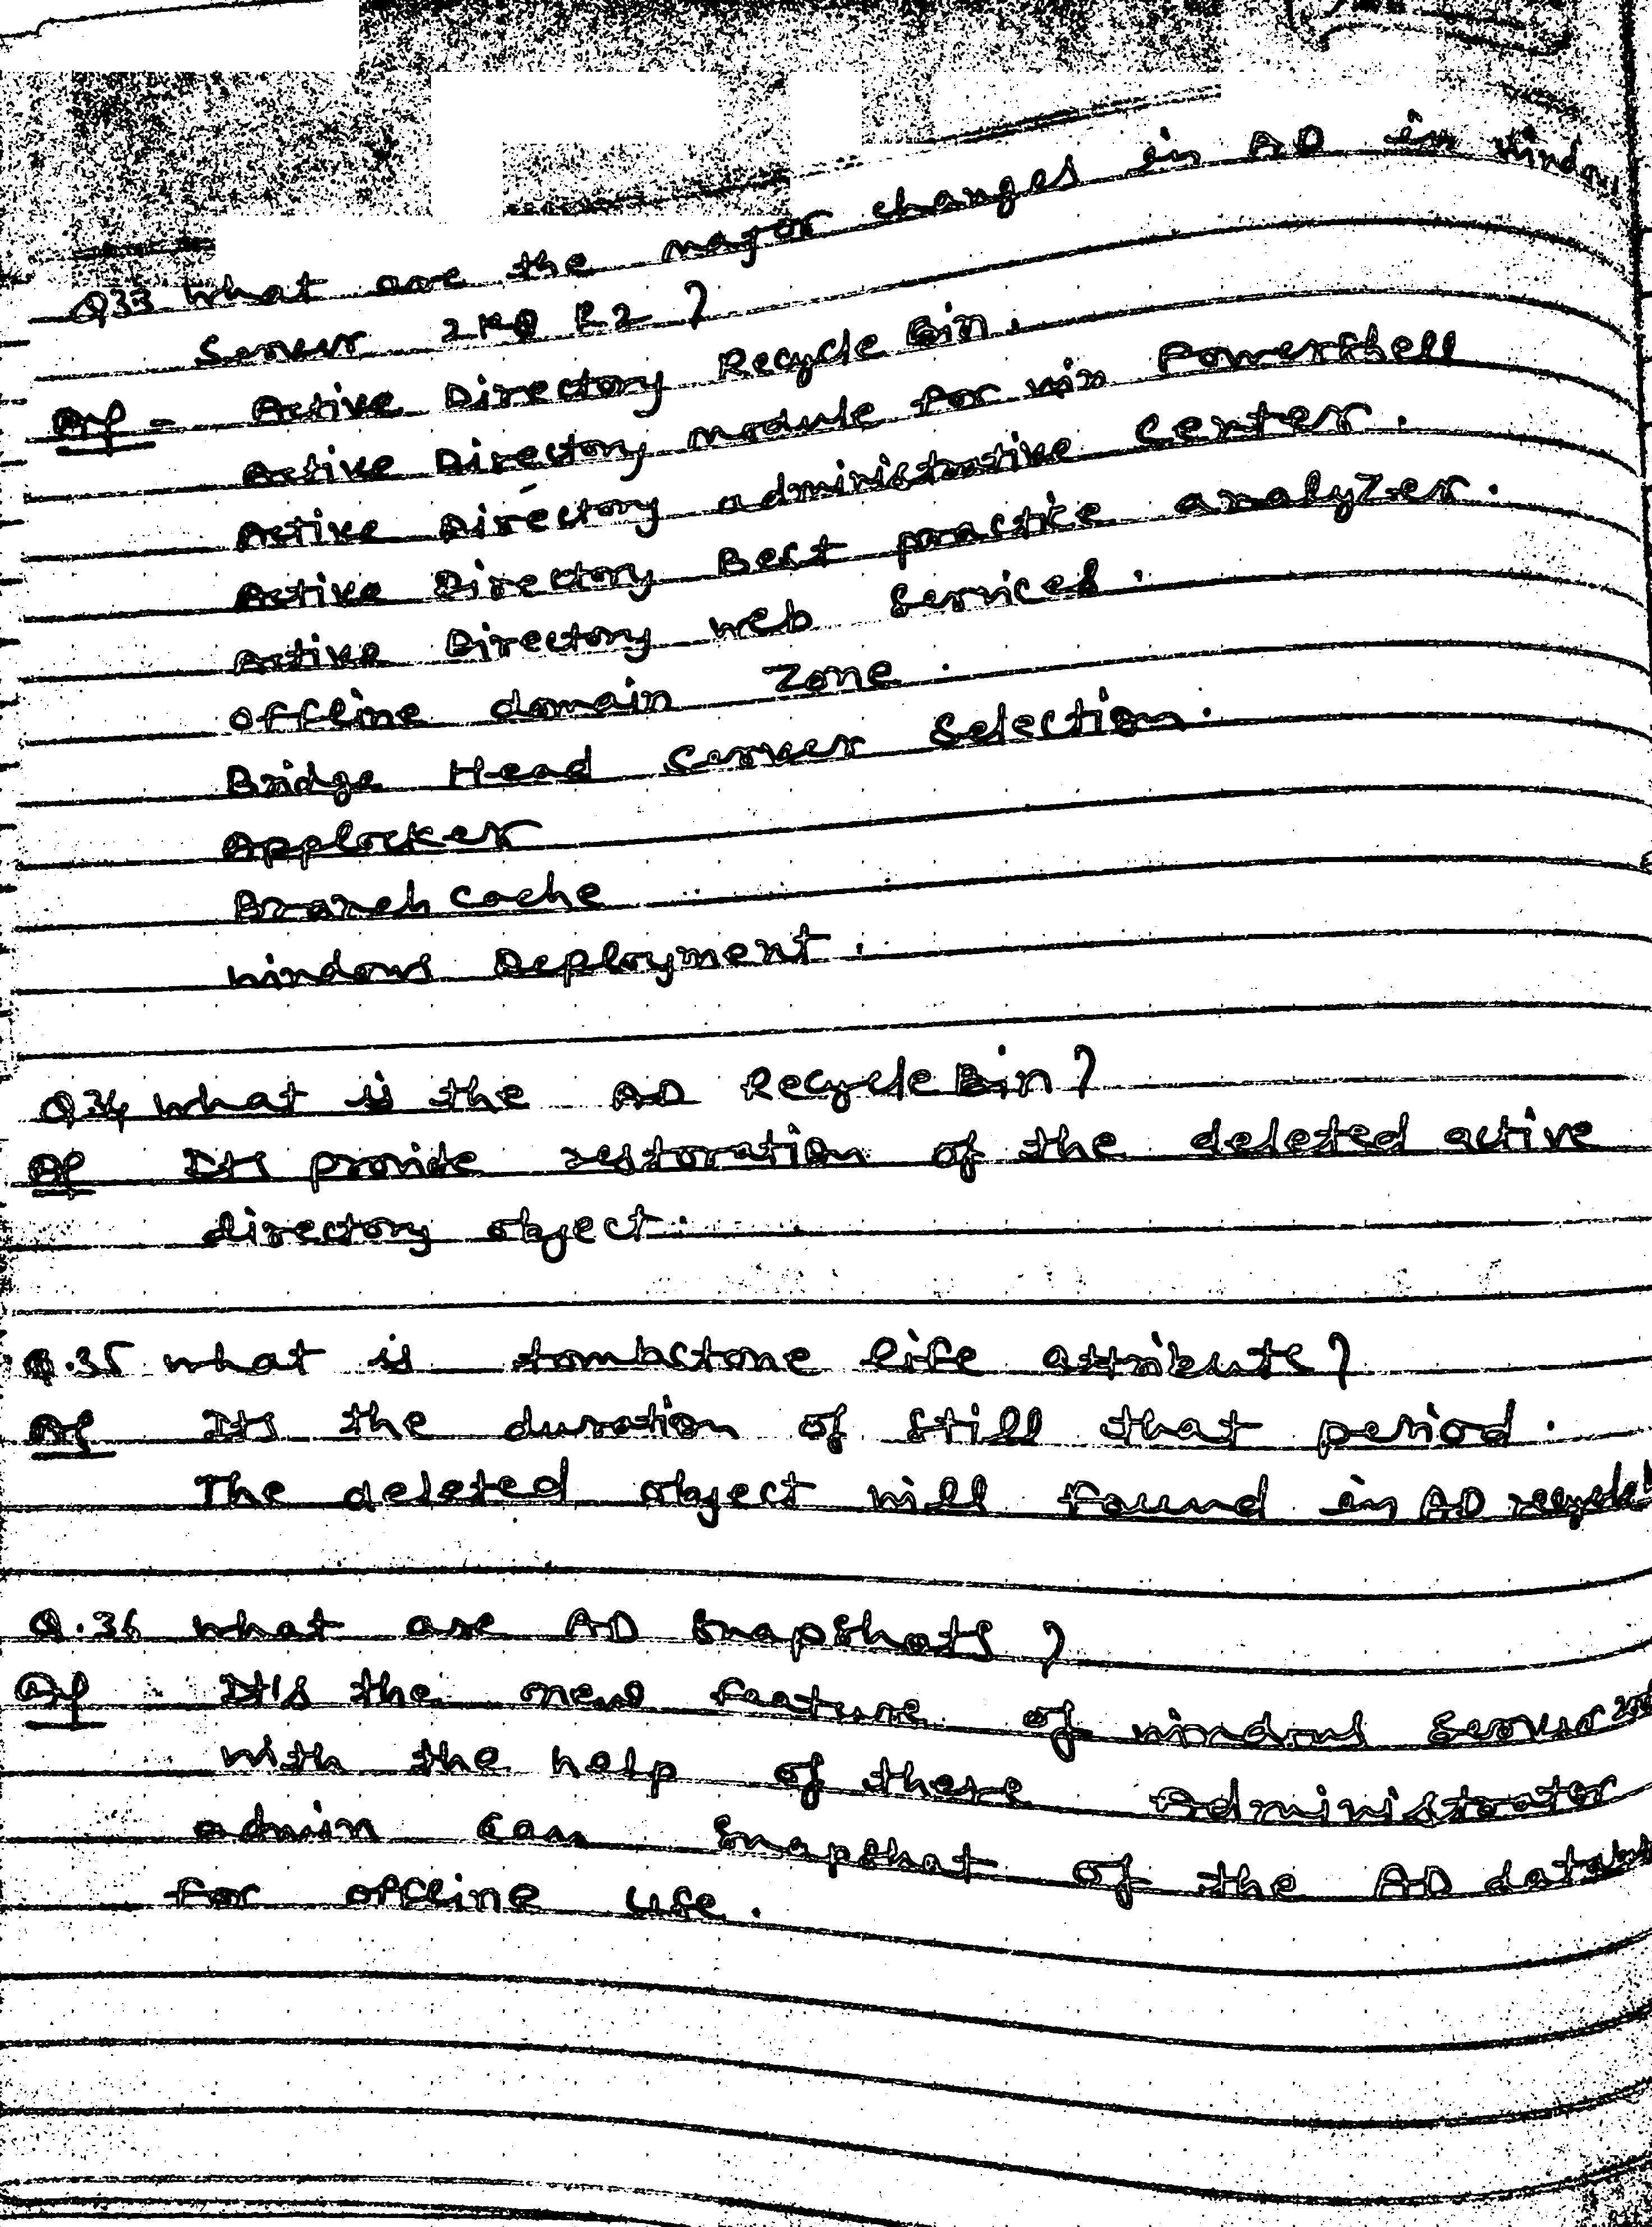 Q33 What are the major changes in AD in Window
Server 2K8 R2 ?
Active Directory Recycle Bin.
Active Directory module for win Powershell
Active Directory administrative Center.
Active Directory Best practice analyzer.
Active Directory web services.
offline domain zone.
Bridge Head Server Selection.
Applocker
Branch cache
windows Deployment.
Q34 What is the AD Recycle Bin ?
Its provide restoration of the deleted active
directory object.
Q.35 what is tombstone life attribute ?
Its the duration of still that period.
The deleted object will found in AD
Q.36 what are AD Snapshots ?
It's the new feature of windows Server
with the help of these Administrator
admin can snapshot of the AD
for offline use.